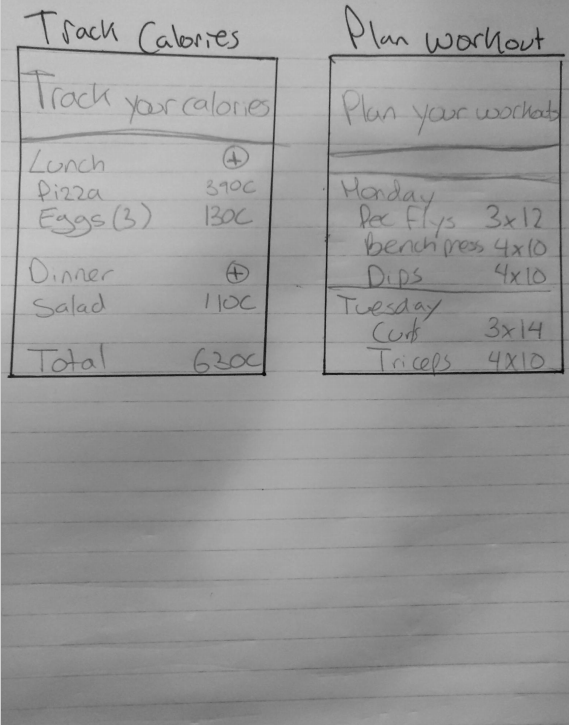 Track Calories
Track your calories
Lunch ⊕
Pizza 390C
Eggs (3) 130C
Dinner ⊕
Salad 110C
Total 630C
Plan workout
Plan your workouts
Monday
Pec Flys 3x12
Bench press 4x10
Dips 4x10
Tuesday
Curls 3x14
Triceps 4x10